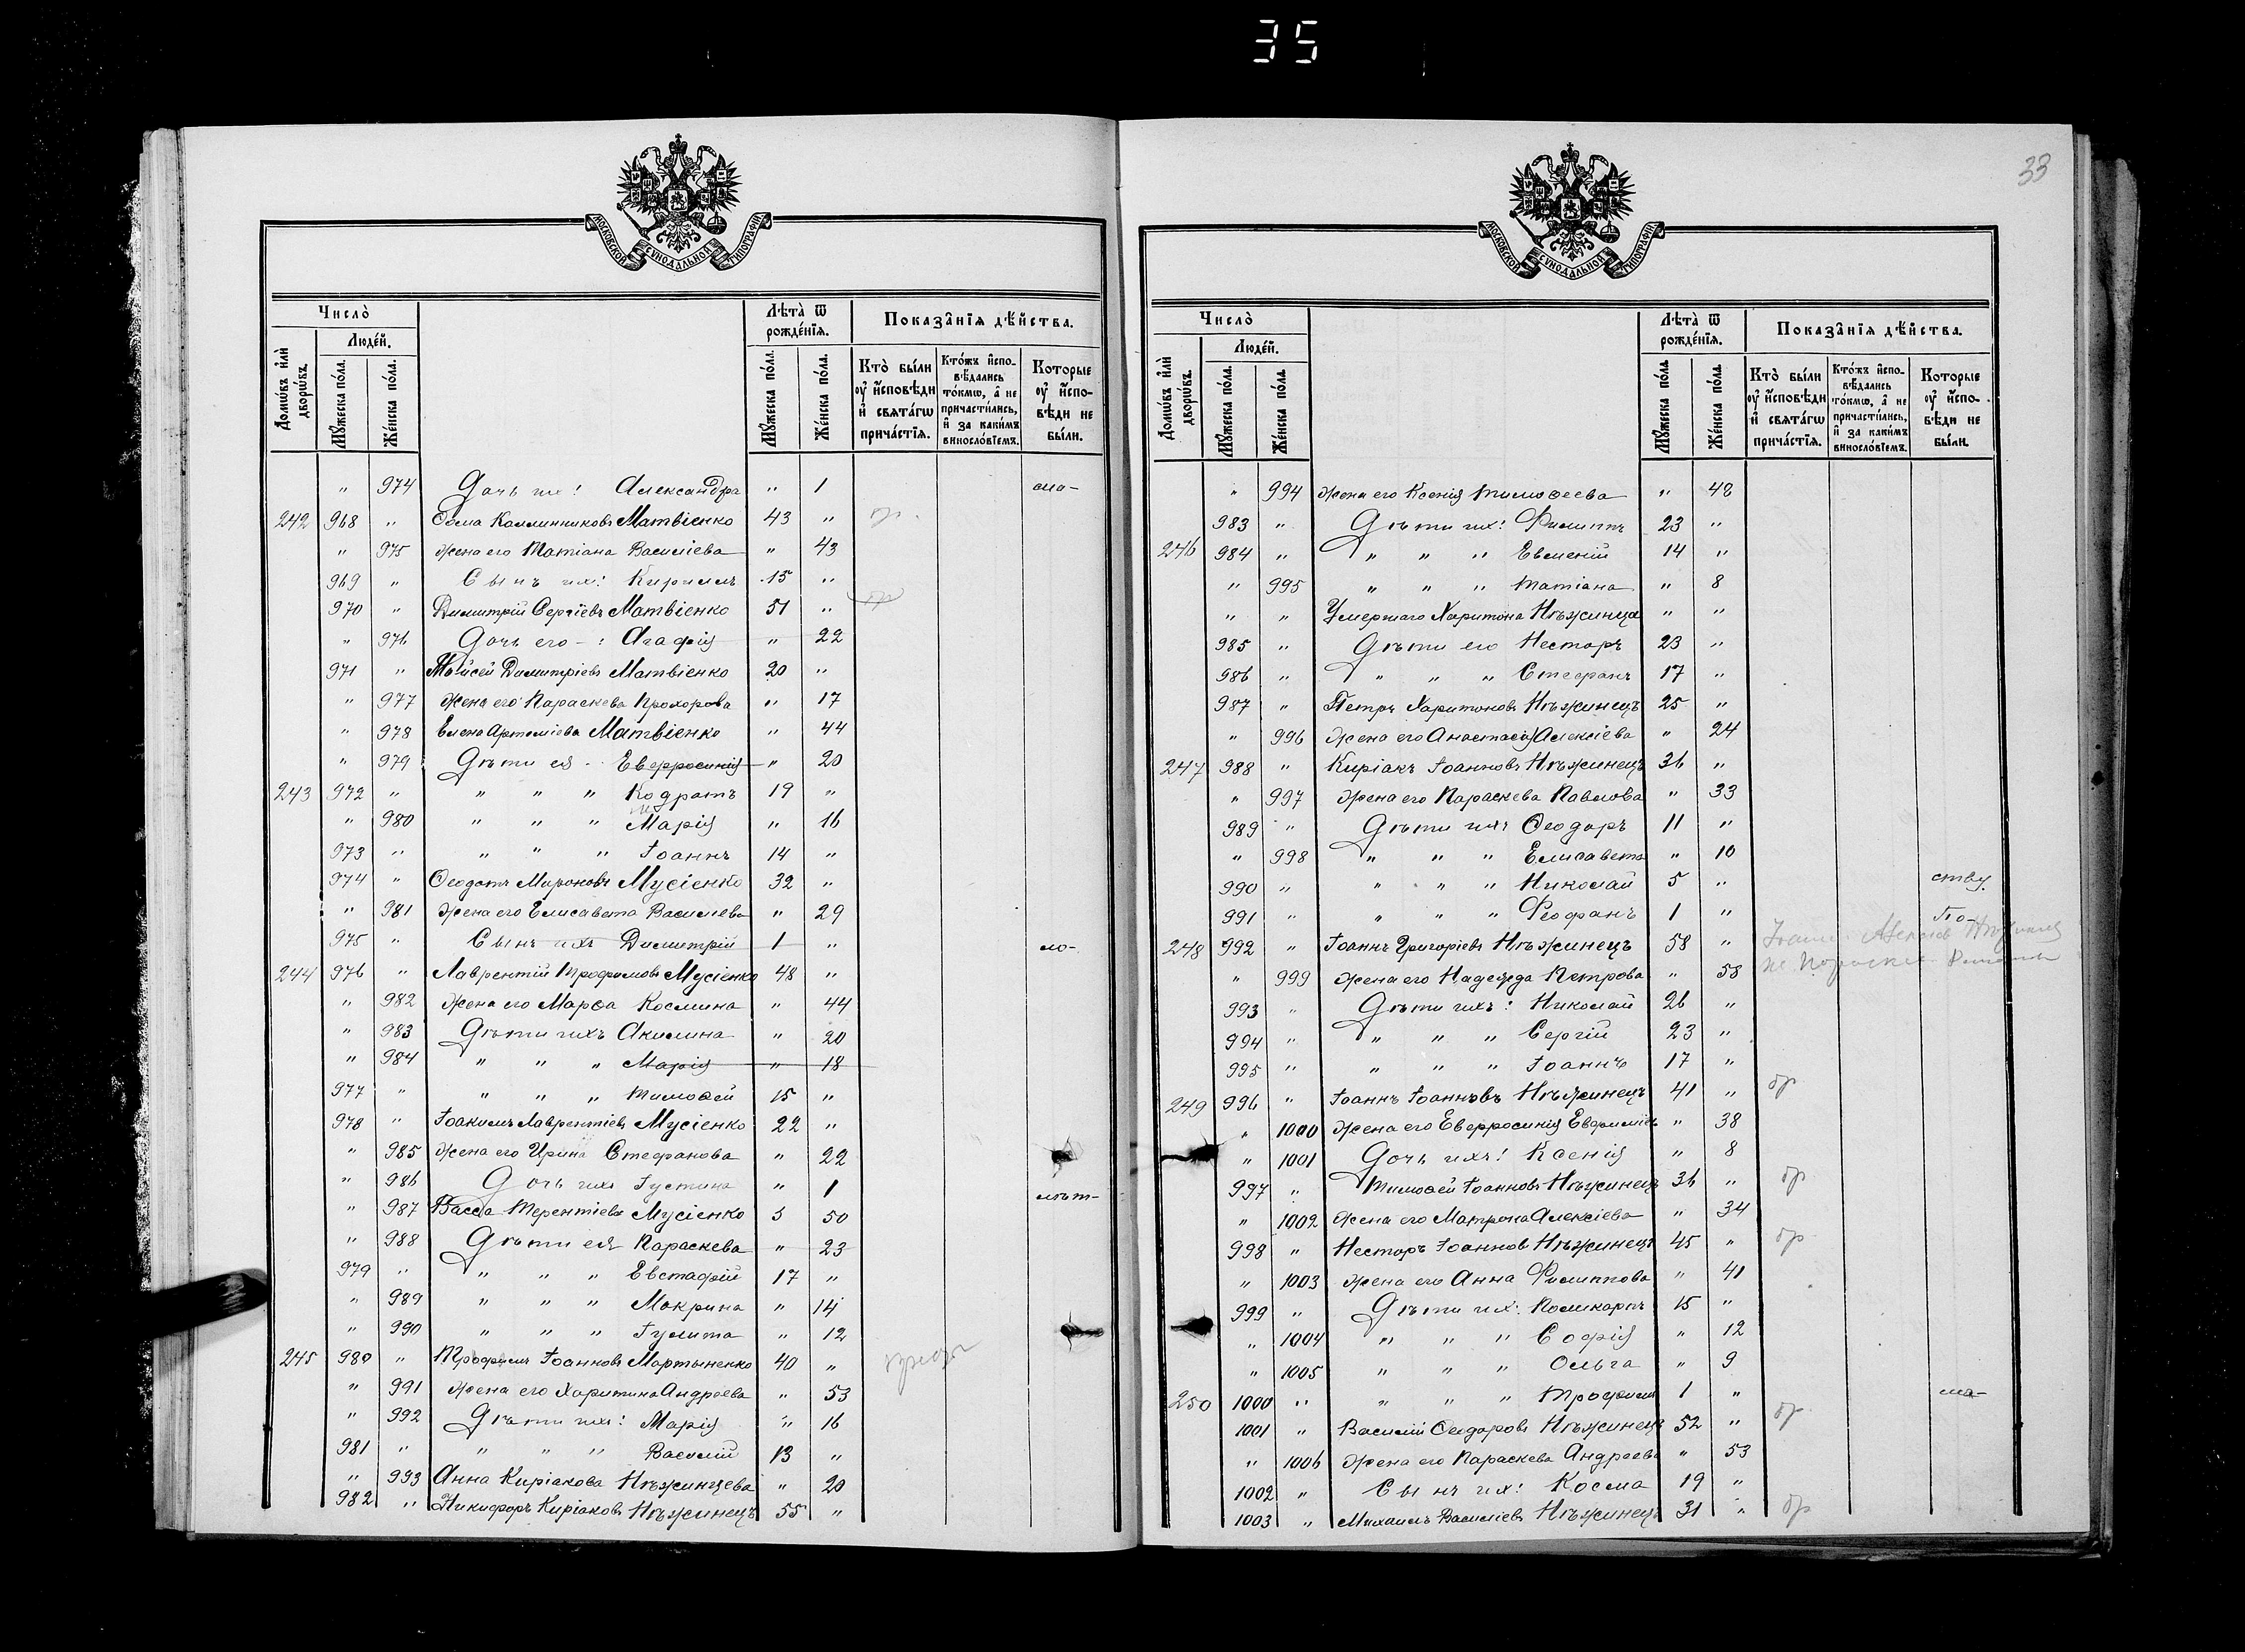 35
МОСКОВСКОЙ СѴНОДАЛЬНОЙ ТИПОГРАФІИ
Число̀
Лѣта̀ ѿ рожде́нїѧ.
Показа̑нїѧ дѣ́йства.
Домѡ́въ и҆лѝ дворѡ́въ.
Люде́й.
Мꙋ́жеска по́ла.
Же́нска по́ла.
Мꙋ́жеска по́ла.
Же́нска по́ла.
Кто̀ бы́ли ᲂу҆ и҆́сповѣди и҆ свѧта́гѡ прича́стїѧ.
Кто́жъ и҆сповѣ́дались то́кмѡ, а҆ не причасти́лись, и҆ за каки́мъ виносло́вїемъ.
Которые ᲂу҆ и҆́сповѣди не бы́ли.
" 974 Дочь их: Александра " 1 мла-
242 968 " Ѳома Каллинниковъ Матвіенко 43 " бр.
" 975 Жена его Татіана Василіева " 43
969 " Сынъ их: Кириллъ 15 "
970 " Димитрій Сергіевъ Матвіенко 51 " бр
" 976 Дочь его -: Агафія " 22
971 " Моѵсей Димитріевъ Матвіенко 20 "
" 977 Жена его Параскева Прохорова " 17
" 978 Елена Артеміева Матвіенко " 44
" 979 Дѣти ея - Евфросинія " 20
243 972 " " " " Кодратъ 19 "
" 980 " " " Марія " 16
973 " " " " Іоаннъ 14 "
974 " Ѳеодотъ Мироновъ Мусіенко 32 "
" 981 Жена его Елисавета Василіева " 29
975 " Сынъ ихъ Димитрій 1 " ло-
244 976 " Лаврентій Трофимовъ Мусіенко 48 "
" 982 Жена его Марѳа Космина " 44
" 983 Дѣти ихъ Акилина " 20
" 984 " " " Марія " 18
977 " " " " Тимоѳей 15 "
978 " Іоакимъ Лаврентіевъ Мусіенко 22 "
" 985 Жена его Ирина Стефанова " 22
" 986 Дочь ихъ Іустина " 1 лѣт-
" 987 Васса Терентіева Мусіенко 50
" 988 Дѣти ея Параскева " 23
979 " " " " Евстафій 17 "
" 989 " " " Макрина " 14
" 990 " " " Іулита " 12
245 980 " Трофимъ Іоанновъ Мартыненко 40 "
" 991 Жена его Харитина Андреева " 53
" 992 Дѣти ихъ: Марія " 16
981 " " " " Василій 13 "
" 993 Анна Киріакова Нѣжинцева " 20
982 " Никифоръ Киріаковъ Нѣжинецъ 55 "
33
МОСКОВСКОЙ СѴНОДАЛЬНОЙ ТИПОГРАФІИ
Число̀
Лѣта̀ ѿ рожде́нїѧ.
Показа̑нїѧ дѣ́йства.
Домѡ́въ и҆лѝ дворѡ́въ.
Люде́й.
Мꙋ́жеска по́ла.
Же́нска по́ла.
Мꙋ́жеска по́ла.
Же́нска по́ла.
Кто̀ бы́ли ᲂу҆ и҆́сповѣди и҆ свѧта́гѡ прича́стїѧ.
Кто́жъ и҆сповѣ́дались то́кмѡ, а҆ не причасти́лись, и҆ за каки́мъ виносло́вїемъ.
Которые ᲂу҆ и҆́сповѣди не бы́ли.
" 994 Жена его Ксенія Тимоѳеева " 42
983 " Дѣти их: Филиппъ 23 "
246 984 " " " " Евменій 14 "
" 995 " " " Татіана " 8
" " Умершаго Харитона Нѣжинца " "
985 " Дѣти его Несторъ 23 "
986 " " " " Стефанъ 17 "
987 " Петръ Харитоновъ Нѣжинецъ 25 "
" 996 Жена его Анастасія Алексіева " 24
247 988 " Киріакъ Іоанновъ Нѣжинецъ 36 "
" 997 Жена его Параскева Павлова " 33
989 " Дѣти ихъ Ѳеодоръ 11 "
" 998 " " " Елисавета " 10
990 " " " " Николай 5 " ству.
991 " " " " Феофанъ 1 " По-
248 992 " Іоаннъ Григоріевъ Нѣжинецъ 58 "
" 999 Жена его Надежда Петрова " 58
993 " Дѣти ихъ: Николай 26 "
994 " " " " Сергій 23 "
995 " " " " Іоаннъ 17 "
249 996 " Іоаннъ Іоанновъ Нѣжинецъ 41 " бр
" 1000 Жена его Евфросинія Евфиміев " 38
" 1001 Дочь ихъ: Ксенія " 8
997 " Тимоѳей Іоанновъ Нѣжинецъ 36 " бр
" 1002 Жена его Матрона Алексіева " 34
998 " Несторъ Іоаннов Нѣжинецъ 45 " бр
" 1003 Жена его Анна Филиппова " 41
999 " Дѣти их: Поликарпъ 15 "
" 1004 " " " Софія " 12
" 1005 " " " Ольга " 9
250 1000 " " " " Трофимъ 1 " мла-
1001 " Василій Ѳеодоровъ Нѣжинецъ 52 " бр
" 1006 Жена его Параскева Андреева " 53
1002 " Сынъ их: Косма 19 "
1003 " Михаилъ Василіевъ Нѣжинецъ 31 " бр